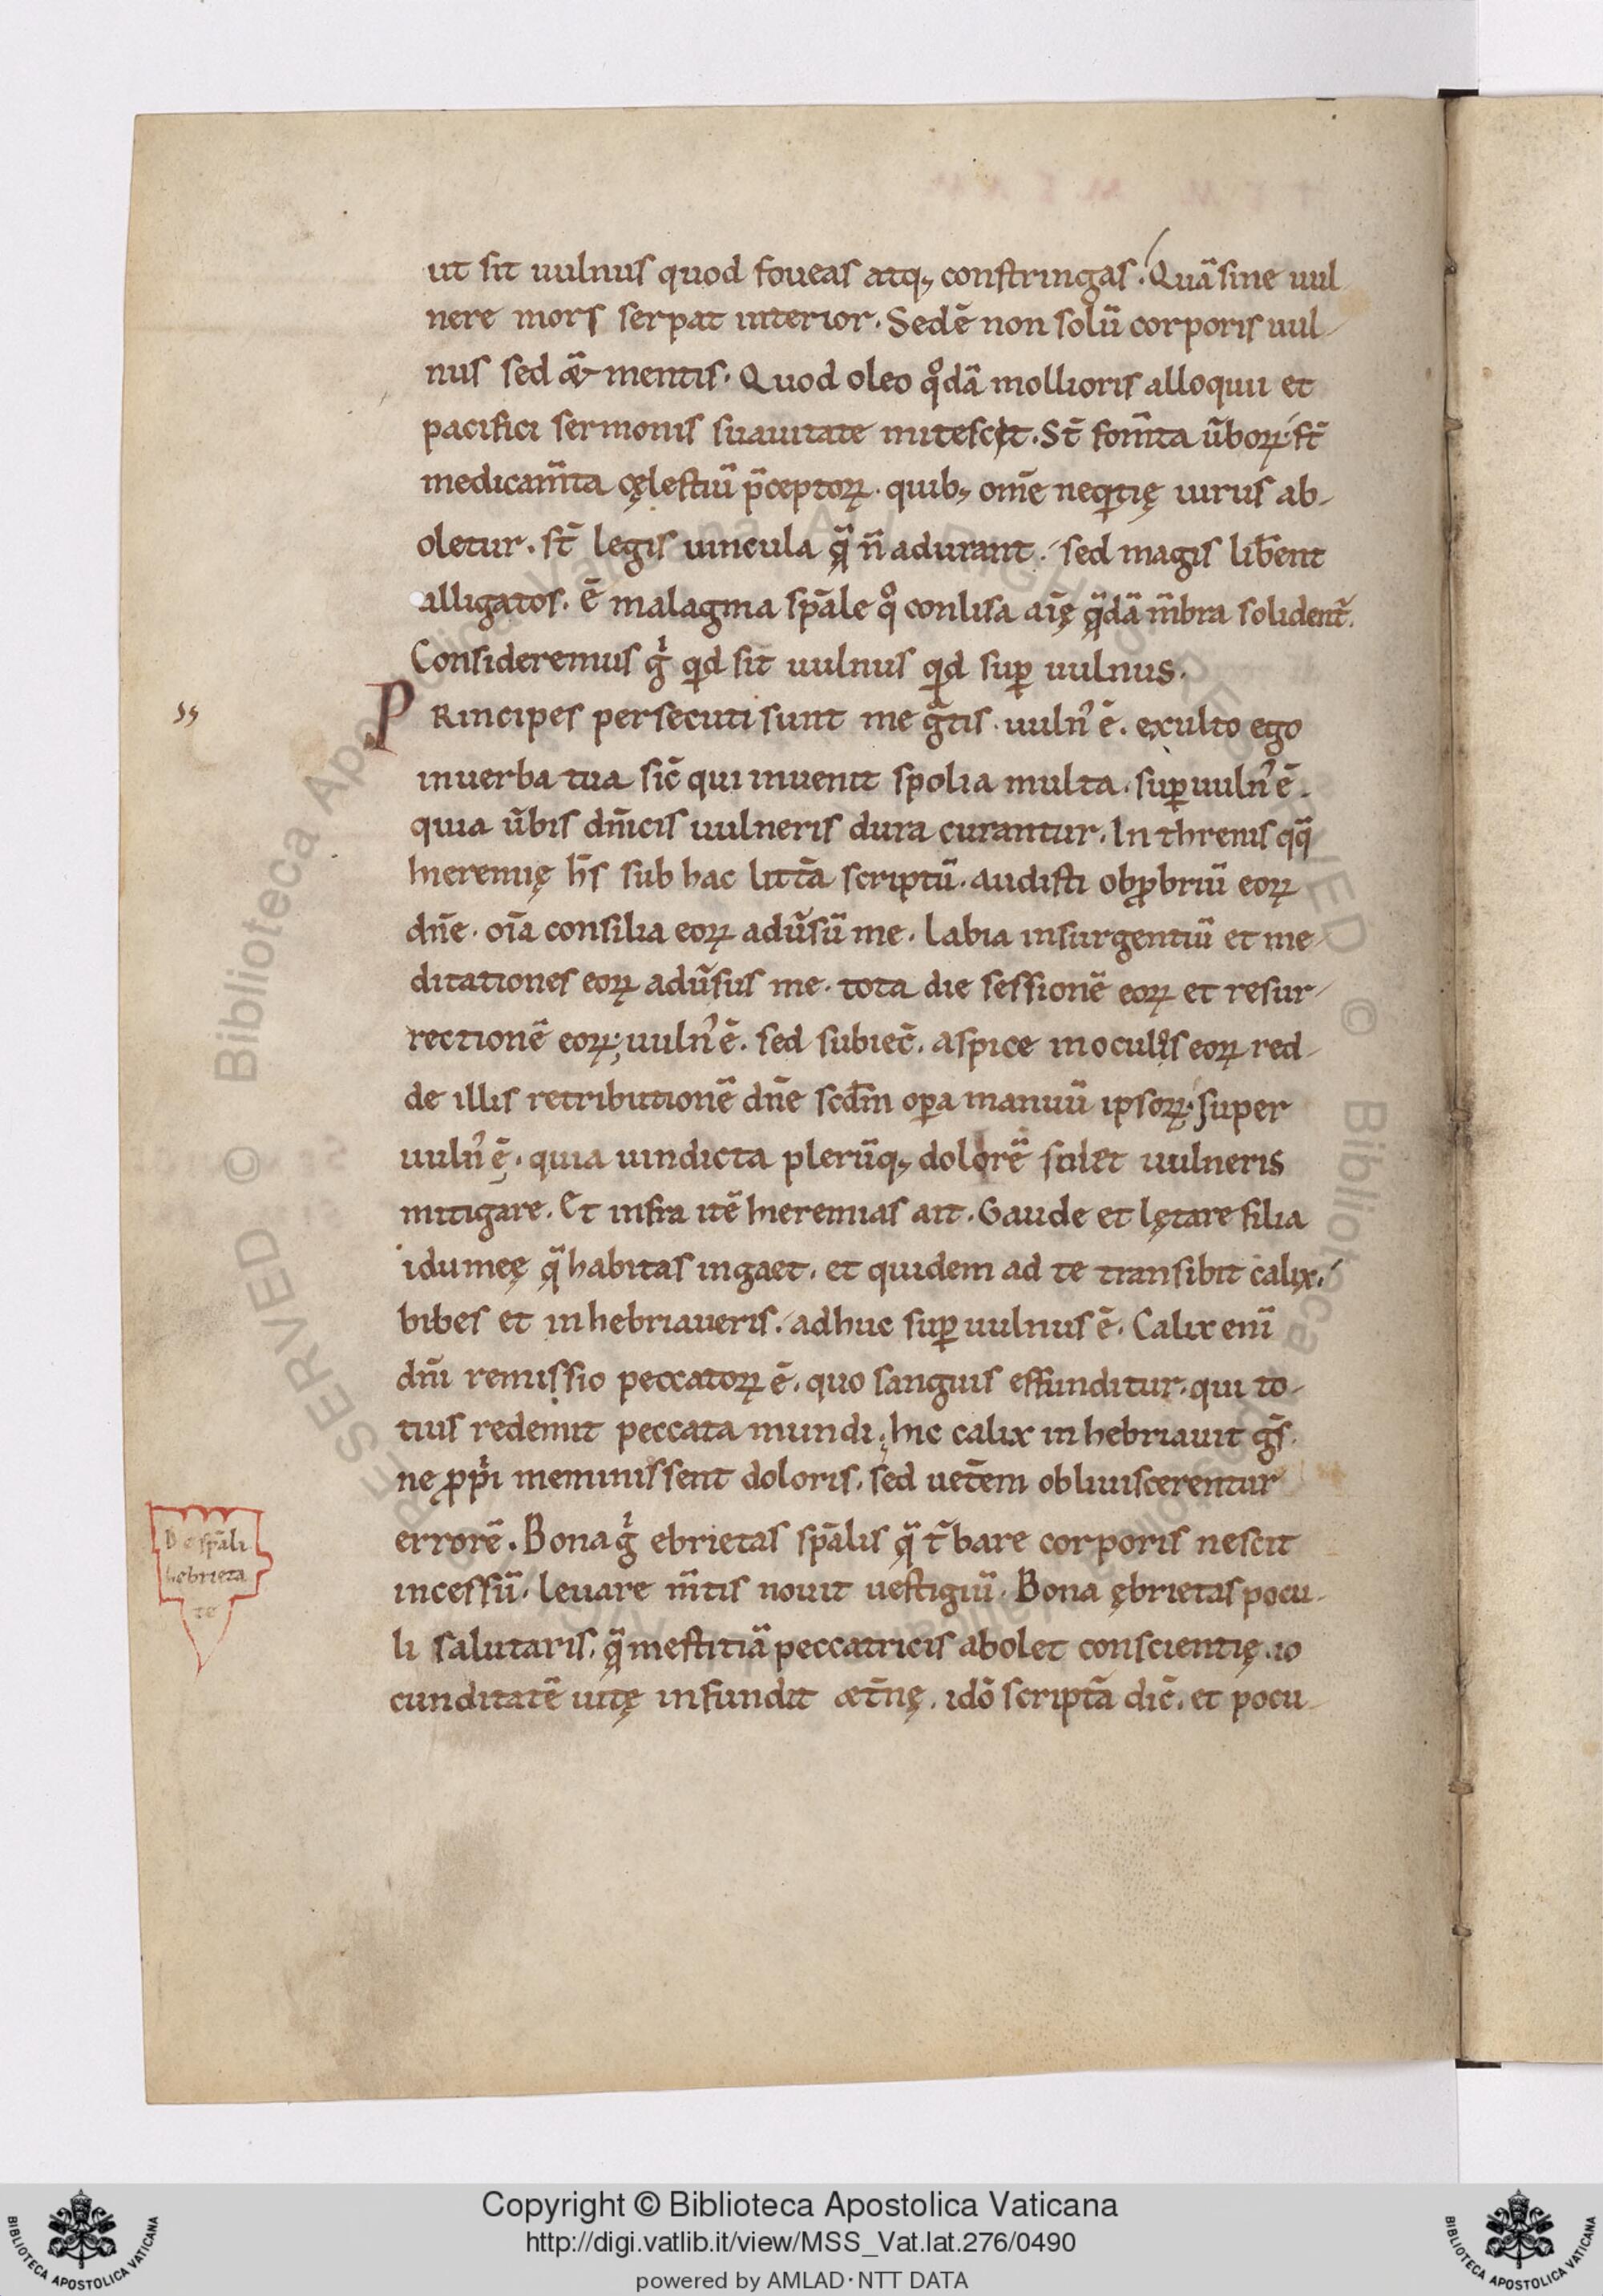 ut sit uulnus quod foueas atq; constringas. Quā sine uul
nere mors serpat interior. Sed ē non solū corporis uul-
nus sed & mentis. Quod oleo qͦdā mollioris alloquii et
pacifici sermonis suauitate mitescit. St̄ fom̄ta ūboꝝ. st̄
medicam̄ta cęlestiū p̄ceptoꝝ. quib; om̄e neqͥtię uirus ab-
oletur. st̄ legis uincula qͣ n̄ adurant. sed magis lib̄ent
alligatos. ē malagma sp̄ale qͦ conlisa aīę qͣdā m̄bra solident̄.
Consideremus gͥ qͥd sit uulnus qͥd suꝑ uulnus.
Principes persecuti sunt me gͣtis. uulnʾ ē. exulto ego
in uerba tua sic̄ qui inuenit spolia multa. suꝑ uulnʾ ē.
quia ūbis dn̄icis uulneris dura curantur. In threnis qq̄
hieremię h̄s sub hac litt̄a scriptū. audisti obꝓbriū eoꝝ
dn̄e. oīa consilia eoꝝ adūsū me. labia insurgentiū et me-
ditationes eoꝝ adūsus me. tota die sessionē eoꝝ et resur-
rectionē eoꝝ; uulnʾ ē. sed subiec̄. aspice in oculis eoꝝ red-
de illis retributionē dn̄e scd̄m oꝑa manuū ipsoꝝ. super
uulnʾ ē. quia uindicta plerūq; dolorē solet uulneris
mitigare. Et infra itē hieremias ait. Gaude et lętare filia
idumeę qͣ habitas in gaet. et quidem ad te transibit calix.
bibes et inhebriaueris. adhuc suꝑ uulnus ē. Calix enī
dn̄i remissio peccatoꝝ ē. quo sanguis effunditur. qui to-
tius redemit peccata mundi. hic calix inhebriauit gēs.
ne ꝓpͥi meminissent doloris. sed uet̄em obliuiscerentur
errorē. Bona gͥ ebrietas sp̄alis qͣ t̄bare corporis nescit
incessū. leuare m̄tis nouit uestigiū. Bona ębrietas pocu-
li salutaris. qͣ mestitiā peccatricis abolet conscientię. io
cunditatē uitę infundit æt̄nę. idō scriptā dic̄. et pocu-
De sp̄ali
hebrieta
te
Copyright © Biblioteca Apostolica Vaticana
http://digi.vatlib.it/view/MSS_Vat.lat.276/0490
powered by AMLAD·NTT DATA
BIBLIOTECA APOSTOLICA VATICANA
BIBLIOTECA APOSTOLICA VATICANA